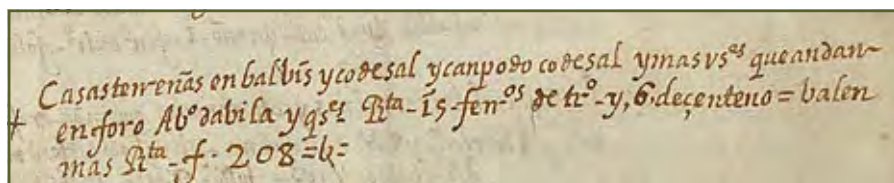 Casas terrenãs en balbis y codesal y canpo do codesal y mas vsᵉˢ que andan
+ en foro Abº dabila y qsᵉˡ Rᵗᵃ - 15 - fenᵒˢ de trº - y, 6. deçenteno = balen
mas Rᵗᵃ - f. 208 =